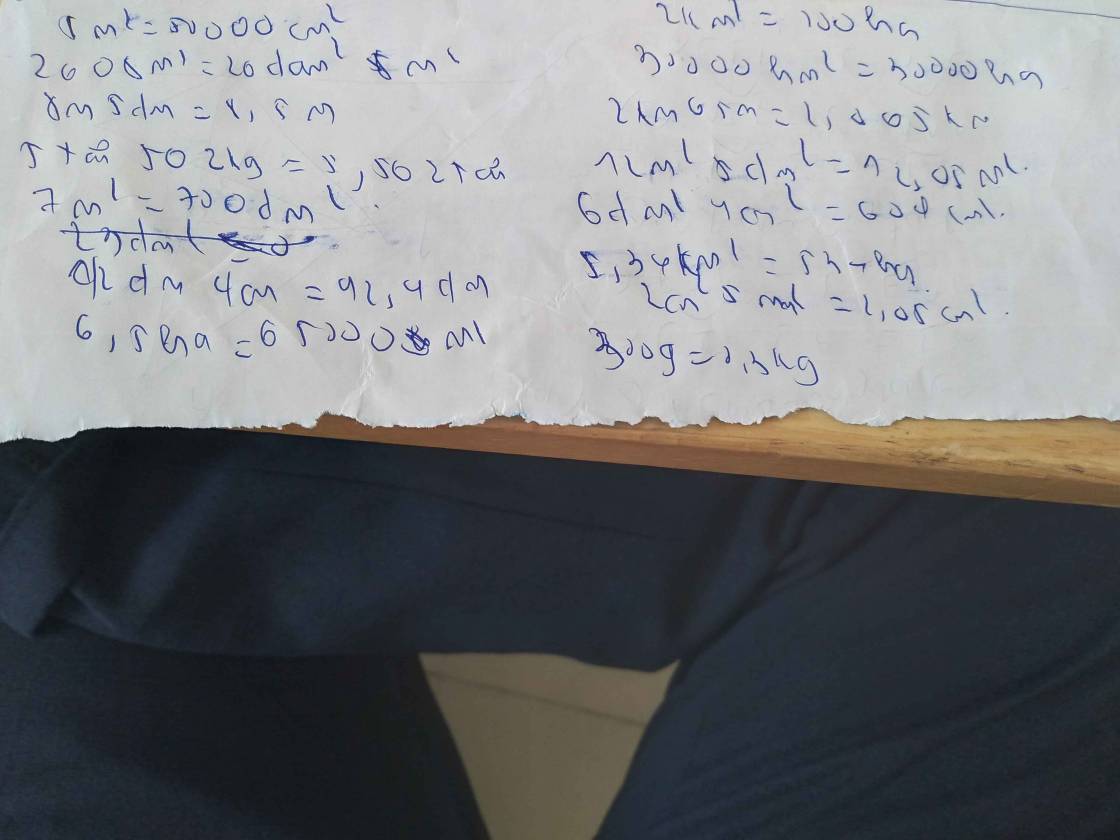 5m² = 50000 cm²
2605m² = 26dam² 5m²
8m 5dm = 8,5m
5 tấn 502kg = 5,502 tấn
7m² = 700dm².
92dm 4cm = 92,4dm
6,5ha = 65000 m²
2km² = 200ha
30000hm² = 30000ha
2km 65m = 2,065km
12m² 5dm² = 12,05m².
6dm² 4cm² = 604cm².
5,34km² = 534ha.
2cm² 5mm² = 2,05cm².
300g = 0,3kg